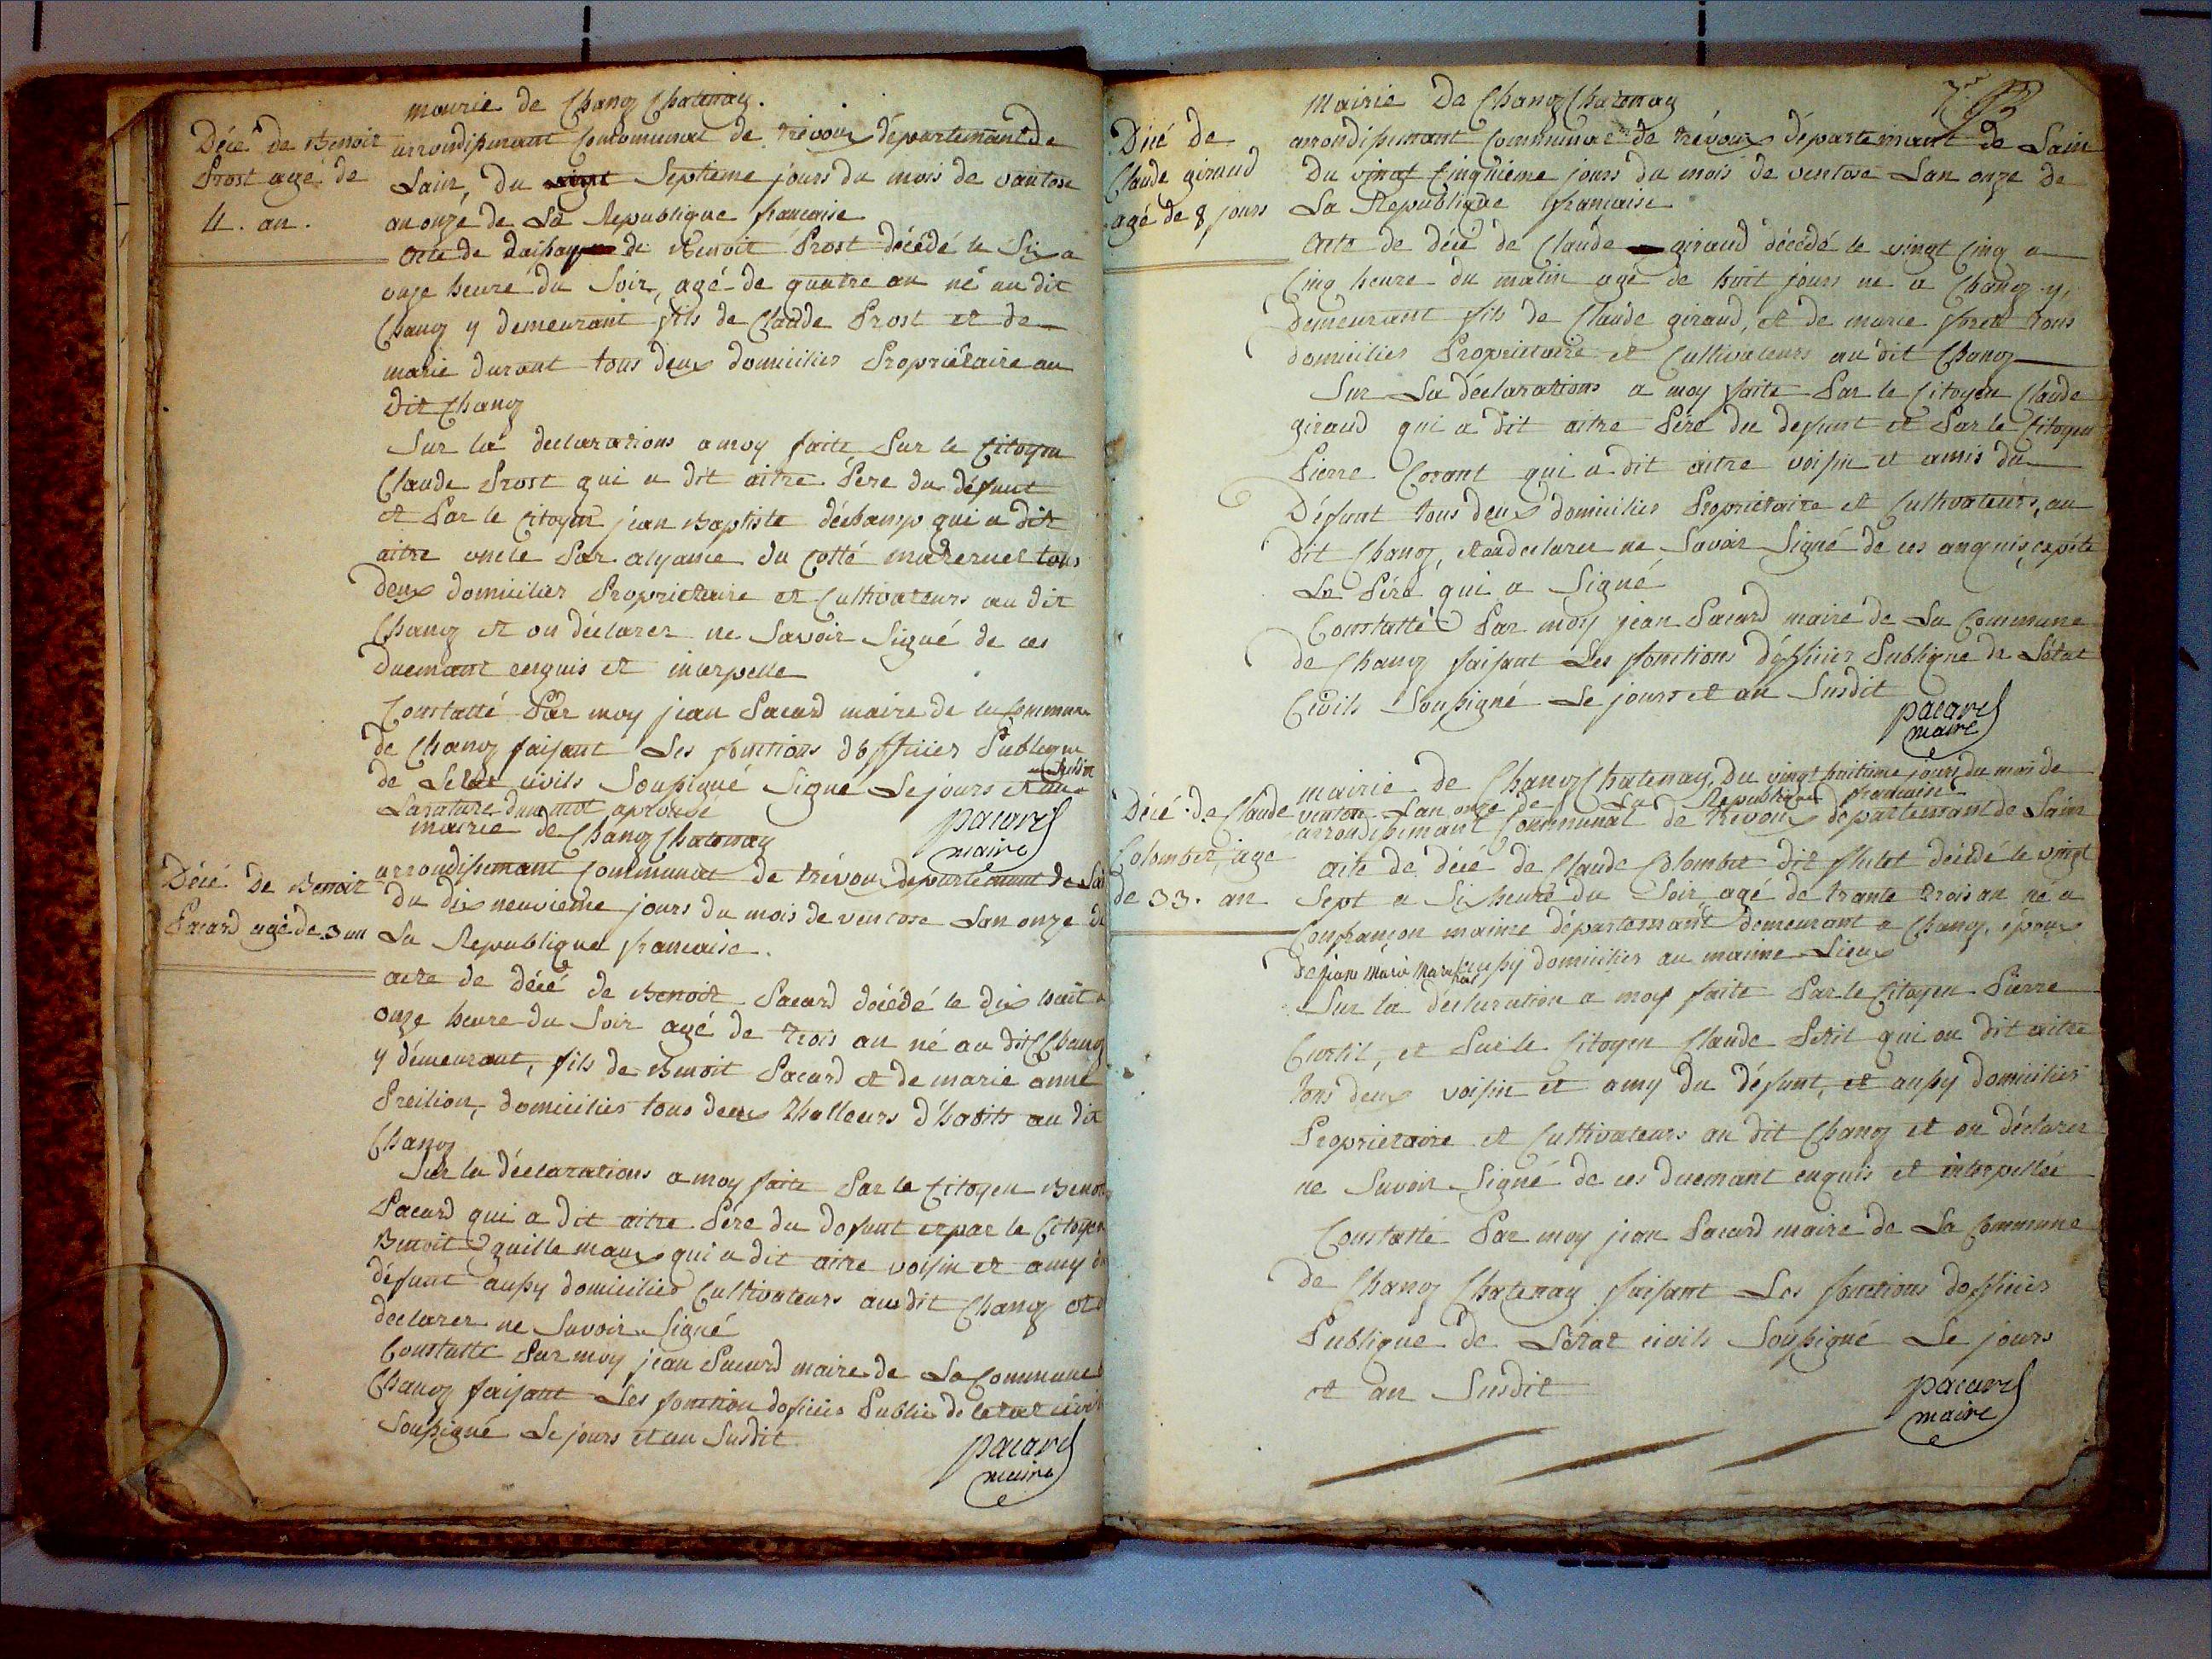 mairie de Chanoz Chatenay.
Décé de Benoit
Prost agé de
4. an.
arrondissemant Communal de trévoux département de
Lain, du septieme jours du mois de vantose
an onze de La Republique francaise
acte de de Benoit Prost décédé le Six a
onze heure du Soir, agé de quatre an né au dit
Chanoz y demeurant fils de Claude Prost et de
marie durant tous deux domicilies Propriétaire au
dit Chanoz
Sur la declarations a moy faite Par le Citoyen
Claude Prost qui a dit aitre Pere du défunt
et Par le Citoyen jean Baptiste déchamp qui a dit
aitre oncle Par alyance du Cotté maternel tous
deux domicilier Proprietaire et Cultivateurs au dit
Chanoz et on déclarer ne Savoir Signé de ces
Duemant enquis et interpelle
Constatté Par moy jean Pacard maire de la Commune
de Chanoz faisant Les fonctions dofficier Publique
de Letat civils Soussigné Signé Le jours et an Susdit
Larature dun mot aprouvé
pacard
maire
mairie de Chanoz Chatenay
Décé de Benoit
Pacard agé de 3 an
arrondissemant Communal de trévoux departement de Lain
du dix neuvieme jours du mois de ventose Lan onze de
La Republique francaise.
acte de décé de Benoit Pacard décédé le dix huit a
onze heure du Soir agé de trois an né au dit Chanoz
y démeurant, fils de Benoit Pacard et de marie anne
domicilies tous deux thalleurs d'habits au dit
Chanoz
Sur la déclarations a moy faite Par le Citoyen Benoit
Pacard qui a dit aitre Pére du defunt et par le Citoyen
Benoit guillemaux qui a dit aitre voisin et amy du
défunt aussy domicilies Cultivateurs au dit Chanoz et
declarer ne Savoir Signé
Constatté Par moy jean Pacard maire de La Commune
Chanoz faisant Les fonction doficier Public de letat civil
Soussigné Le jours et an Susdit
pacard
maire
Mairie De Chanoz Chatenay
Décé de
Claude giraud
agé de 8 jours
arrondissemant Communal de trévoux département de Lain
Du vingt Cinquiéme jours du mois de ventose Lan onze de
La Republique francaise
acte de décé de Claude giraud décédé le vingt Cinq a
Cinq heure du matin agé de huit jours né a Chanoz y,
demeurant fils de Claude giraud, et de marie tous
domicilies Proprietaire et Cultivateurs au dit Chanoz
Sur La déclarations a moy faite Par le Citoyen Claude
giraud qui a dit aitre Pére du defunt et Par le Citoyen
Pierre Corant qui a dit aitre voisin et amis du
Défunt tous deux domicilies Proprietaire et Cultivateurs, au
dit Chanoz, et on declarer ne Savoir Signé de ces anquis, expété
Le Pére qui a Signé
Constatté Par moy jean Pacard maire de La Commune
de Chanoz faisant Les fonctions d'officier Publique de Létat
Civils Soussigné Le jours et an Susdit
pacard
maire
mairie de Chanoz Chatenay, Du vingt huitieme jours du mois de
Décé de Claude
Colombet, age
de 33. an
ventose Lan onze de La Republique francaise
arrondissemant Communal de trévoux departemant de Lain
acte de décé de Claude Colombet dit flutet décédé le vingt
Sept a Six heure du Soir, agé de trante trois an né a
Confrançon maime départemant demeurant a Chanoz, époux
De jeane Marie aussy domicilies au maime Lieux
Sur la déclaration a moy faite Par le Citoyen Pierre
Curtil, et Par le Citoyen Claude Petit qui on dit aitre
tous deux voisin et amy du défunt, et aussy domicilies
Proprietaire et Cultivateurs au dit Chanoz et on déclarer
ne Savoir Signé de ces duemant enquis et interpellée
Constatté Par moy jean Pacard maire de La Commune
de Chanoz Chatenay faisant Les fonctions dofficier
Publique de Létat civils Soussigné Le jours
et an Susdit
pacard
maire